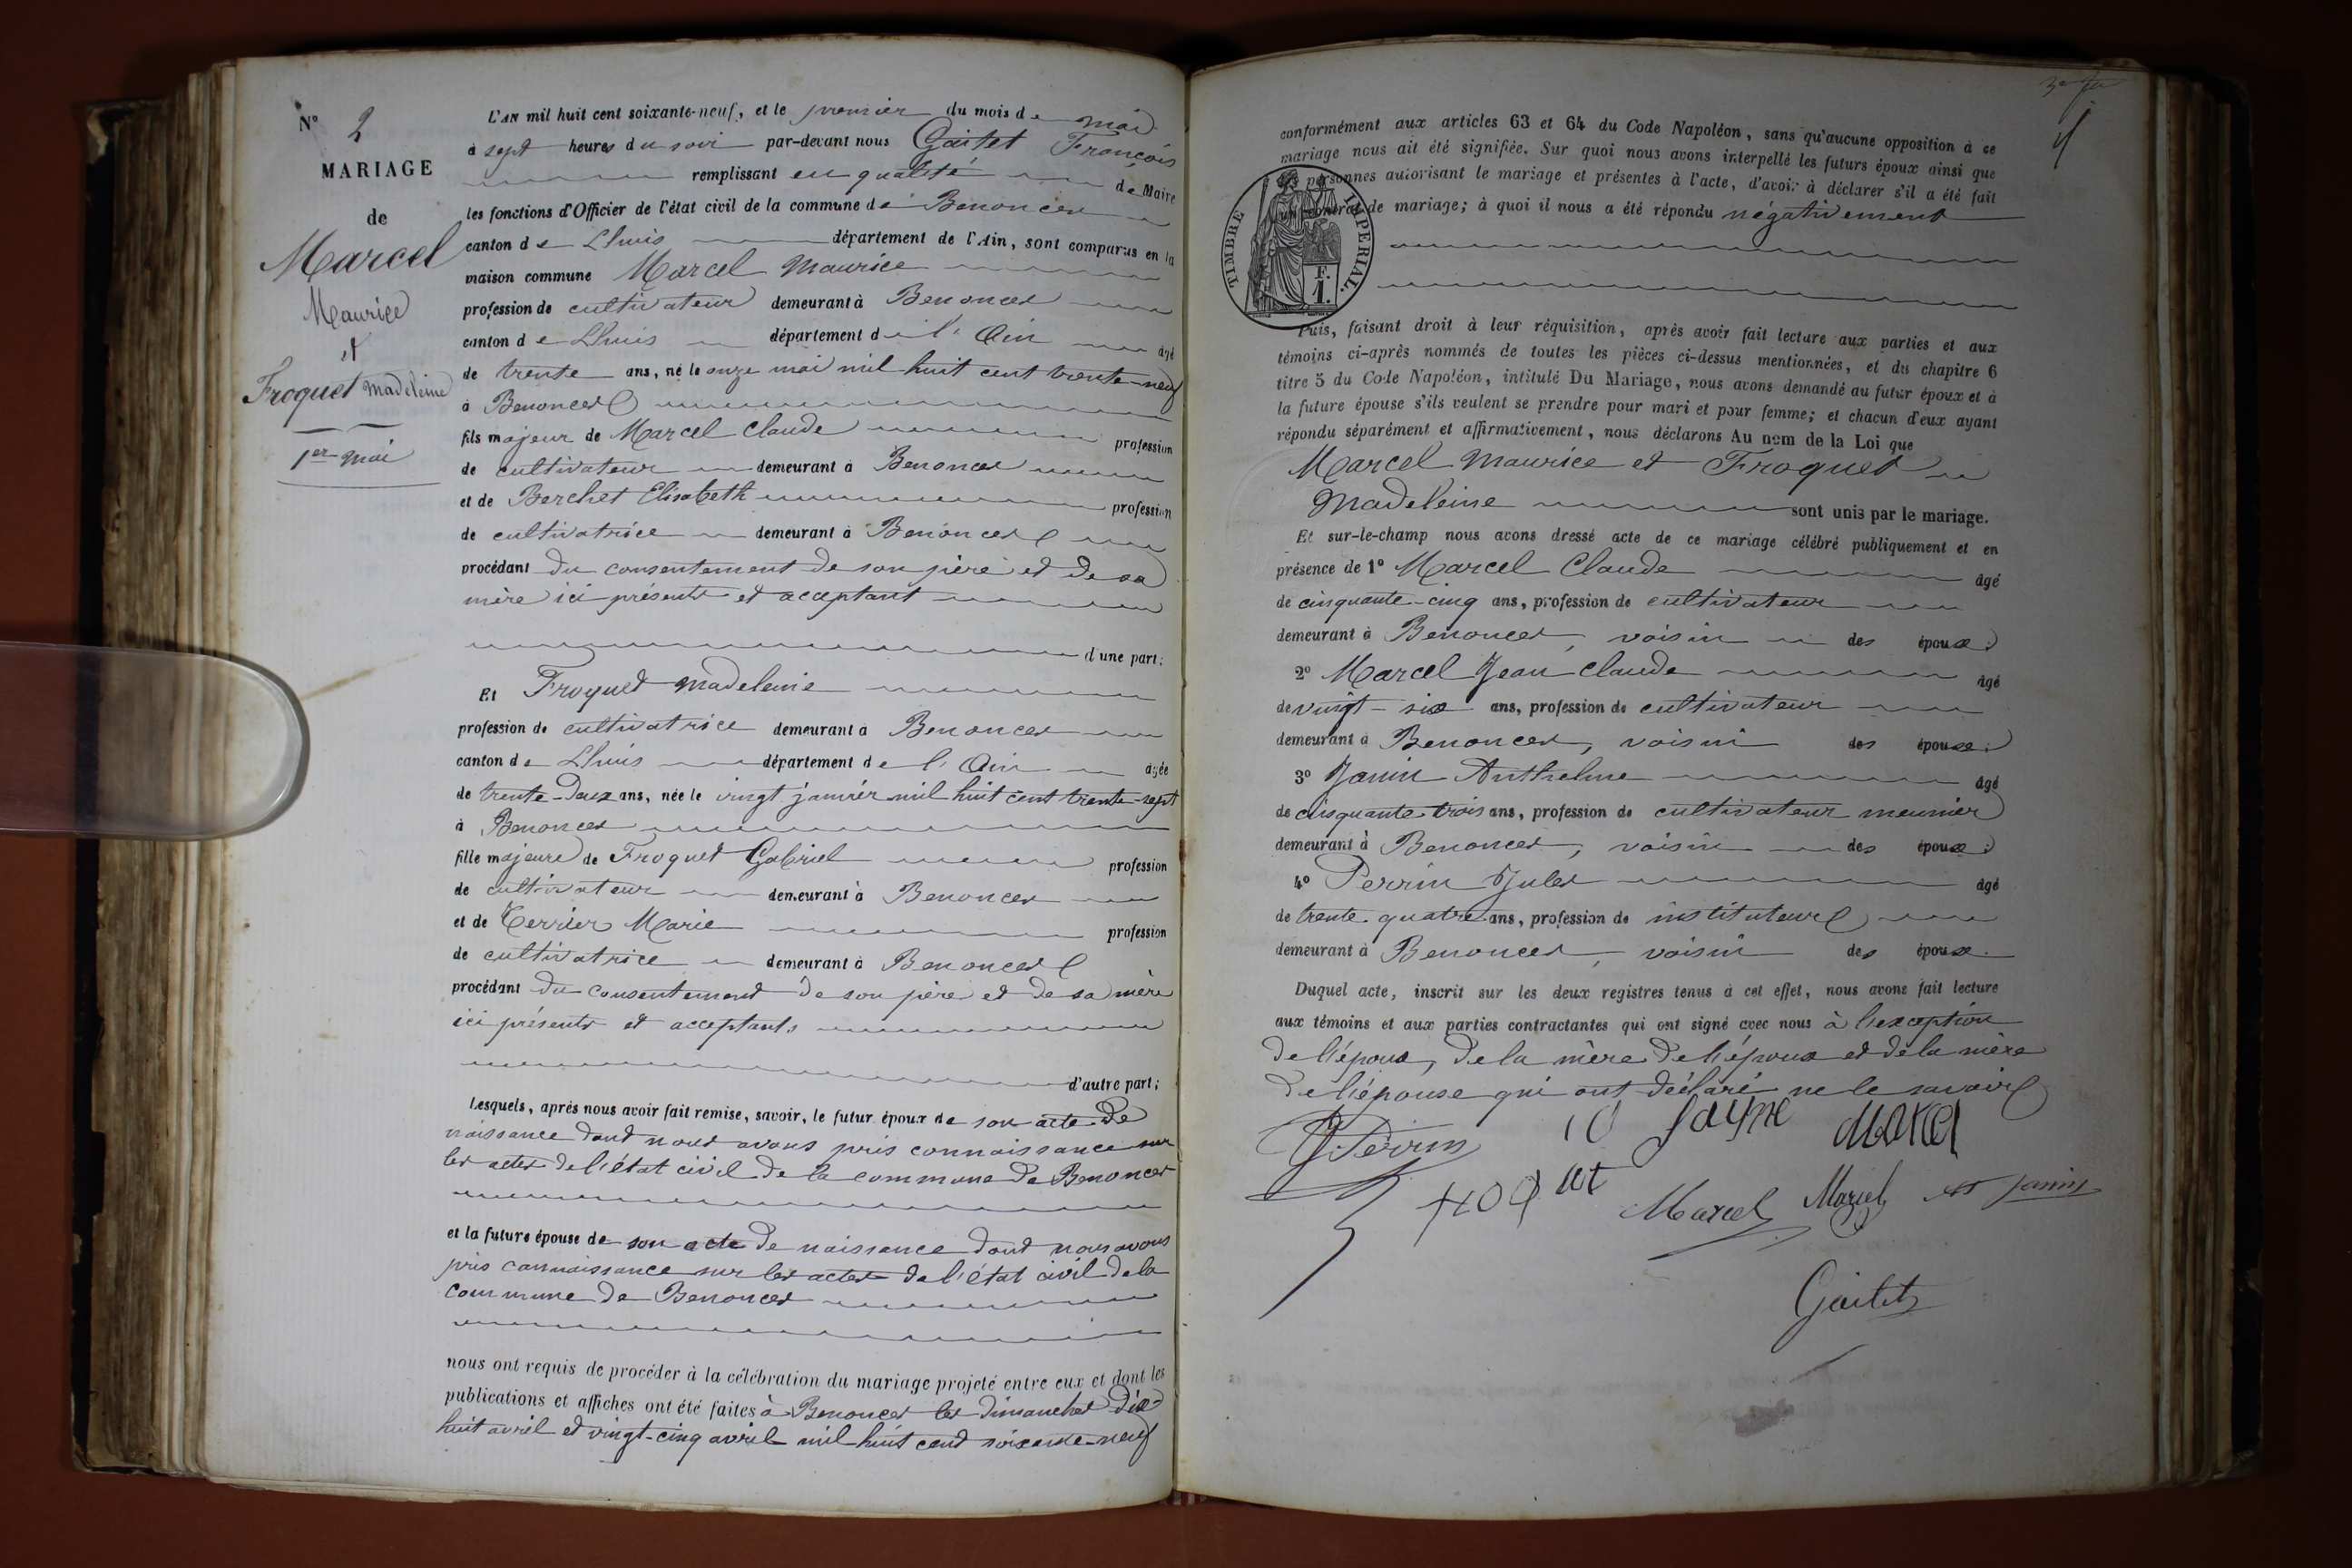 N° 2
MARIAGE
de
Marcel
Maurice
et
Froquet Madeleine
1er Mai
L'AN mil huit cent soixante-neuf, et le premier du mois de mai
à sept heures du soir par-devant nous Gaitet François
remplissant en qualité de Maire
les fonctions d'Officier de l'état civil de la commune de Benonces
canton de Lhuis département de l'Ain, sont comparus en la
maison commune Marcel Maurice
profession de cultivateur demeurant à Benonces
canton de Lhuis département de l'Ain âgé
de trente ans, né le onze mai mil huit cent trente-neuf
à Benonces
fils majeur de Marcel Claude profession
de cultivateur demeurant à Benonces
et de Berchet Elisabeth profession
de cultivatrice demeurant à Benonces
procédant du consentement de son père et de sa
mère ici présents et acceptant
d'une part;
Et Froquet Madeleine
profession de cultivatrice demeurant à Benonces
canton de Lhuis département de l'Ain âgée
de trente-deux ans, née le vingt janvier mil huit cent trente-sept
à Benonces
fille majeure de Froquet Gabriel profession
de cultivateur demeurant à Benonces
et de Terrier Marie profession
de cultivatrice demeurant à Benonces
procédant du consentement de son père et de sa mère
ici présents et acceptants
d'autre part;
Lesquels, après nous avoir fait remise, savoir, le futur époux de son acte de
naissance dont nous avons pris connaissance sur
les actes de l'état civil de la commune de Benonces
et la future épouse de son acte de naissance dont nous avons
pris connaissance sur les actes de l'état civil de la
commune de Benonces
nous ont requis de procéder à la célébration du mariage projeté entre eux et dont les
publications et affiches ont été faites à Benonces les dimanches dix-
huit avril et vingt-cinq avril mil huit cent soixante-neuf
conformément aux articles 63 et 64 du Code Napoléon, sans qu'aucune opposition à ce
mariage nous ait été signifiée. Sur quoi nous avons interpellé les futurs époux ainsi que
les personnes autorisant le mariage et présentes à l'acte, d'avoir à déclarer s'il a été fait
un contrat de mariage; à quoi il nous a été répondu négativement
TIMBRE IMPERIAL.
F.
1.
Puis, faisant droit à leur réquisition, après avoir fait lecture aux parties et aux
témoins ci-après nommés de toutes les pièces ci-dessus mentionnées, et du chapitre 6
titre 5 du Code Napoléon, intitulé Du Mariage, nous avons demandé au futur époux et à
la future épouse s'ils veulent se prendre pour mari et pour femme; et chacun d'eux ayant
répondu séparément et affirmativement, nous déclarons Au nom de la Loi que
Marcel Maurice et Froquet
Madeleine sont unis par le mariage.
Et sur-le-champ nous avons dressé acte de ce mariage célébré publiquement et en
présence de 1° Marcel Claude âgé
de cinquante-cinq ans, profession de cultivateur
demeurant à Benonces, voisin des époux.
2° Marcel Jean Claude âgé
de vingt-six ans, profession de cultivateur
demeurant à Benonces, voisin des époux.
3° Janin Anthelme âgé
de cinquante-trois ans, profession de cultivateur meunier
demeurant à Benonces, voisin des époux.
4° Perrin Jules âgé
de trente-quatre ans, profession de instituteur
demeurant à Benonces, voisin des époux.
Duquel acte, inscrit sur les deux registres tenus à cet effet, nous avons fait lecture
aux témoins et aux parties contractantes qui ont signé avec nous à l'exception
de l'époux, de la mère de l'époux et de la mère
de l'épouse qui ont déclaré ne le savoir
J. Perrin
Marcel
Marcel Marcel Janin
Gaitet